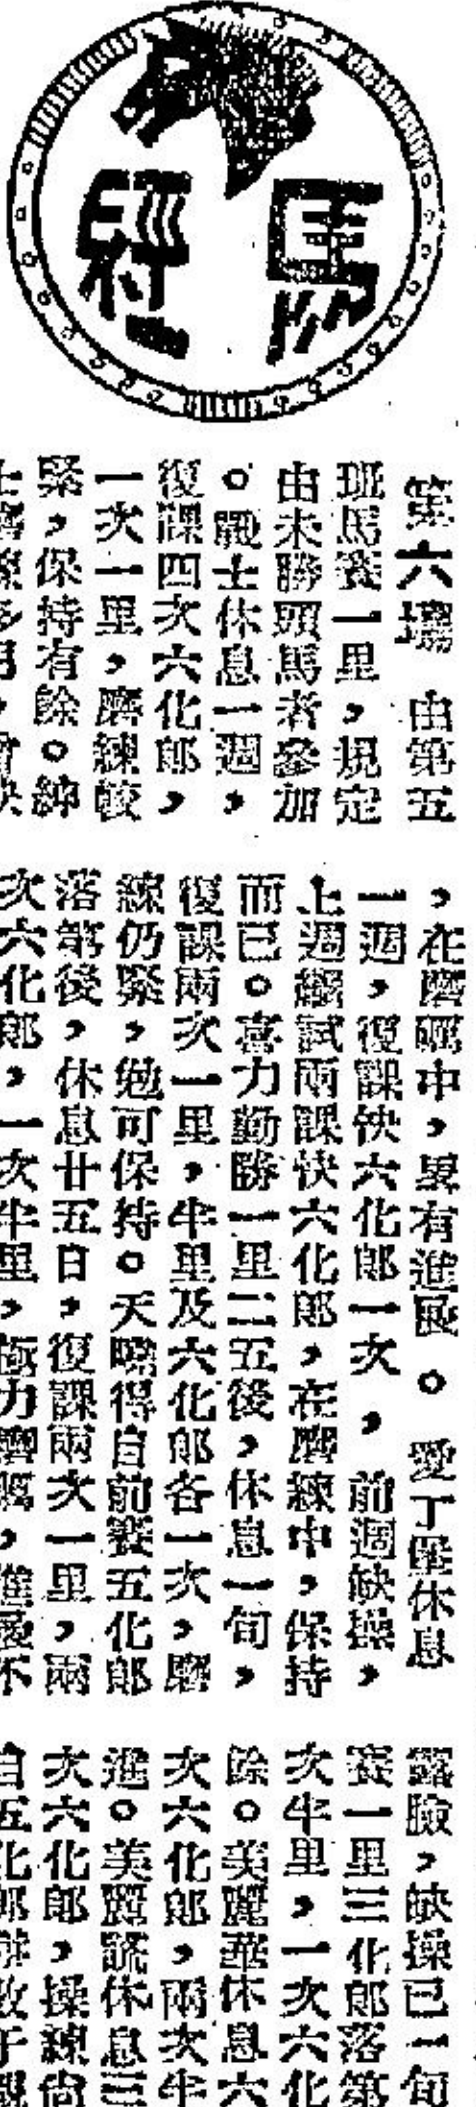 馬經
第六塲 由第五
班馬賽一里,規定
由未勝頭馬者參加
。戰士休息一週,
復課四次六化郎,
一次一里,磨練較
緊,保持有餘。紳
,在磨礪中,畧有進展。愛丁堡休息
一週,復課快六化郎一次,前週缺操,
上週繼試兩課快六化郎,在磨練中,保持
而已。喜力勤勝一里二五後,休息一旬,
復課兩次一里,半里及六化郎各一次,磨
練仍緊,勉可保持。天曉得自前賽五化郎
落第後,休息廿五日,復課兩次一里,兩
次六化郎,一次半里,極力磨礪,進展不
露臉,缺操已一旬
賽一里三化郎落第
次半里,一次六化
餘。美麗華休息六
次六化郎,兩次半
進。美麗誌休息三
次六化郎,操練尚
自五化郎